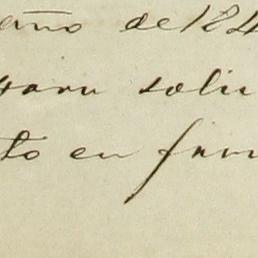 año de 184
para solic
to en fun